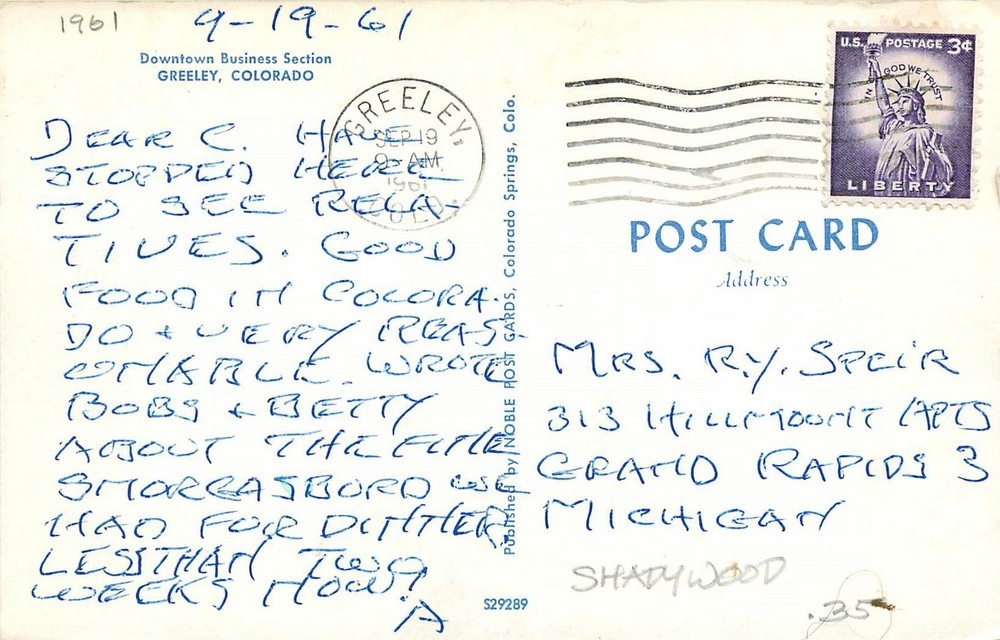 1961
9-19-61
Downtown Business Section
GREELEY, COLORADO
DEAR C. HAVE
STOPPED HERE
TO SEE RELA-
TIVES. GOOD
FOOD IN COLORA-
DO + VERY REAS-
ONABLE. WROTE
BOBS + BETTY
ABOUT THE FINE
SMORGASBORD WE
HAD FOR DINNER.
LESS THAN TWO
WEEKS NOW!
A
GREELEY,
SEP 19
9 AM
1961
COLO.
Published by NOBLE POST CARDS, Colorado Springs, Colo.
S29289
U.S. POSTAGE 3¢
IN GOD WE TRUST
LIBERTY
POST CARD
Address
MRS. R.Y. SPEIR
313 HILLMOUNT APTS
GRAND RAPIDS 3
MICHIGAN
SHADYWOOD
.35